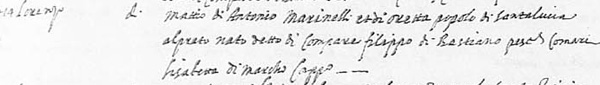 Lorenzo d. Matteo di Antonio Marinelli et di oretta popolo di Santa lucia
al prato nato detto di Compare filippo di Bastiano pesc. Comari
lisabetta di Marcho Cappo